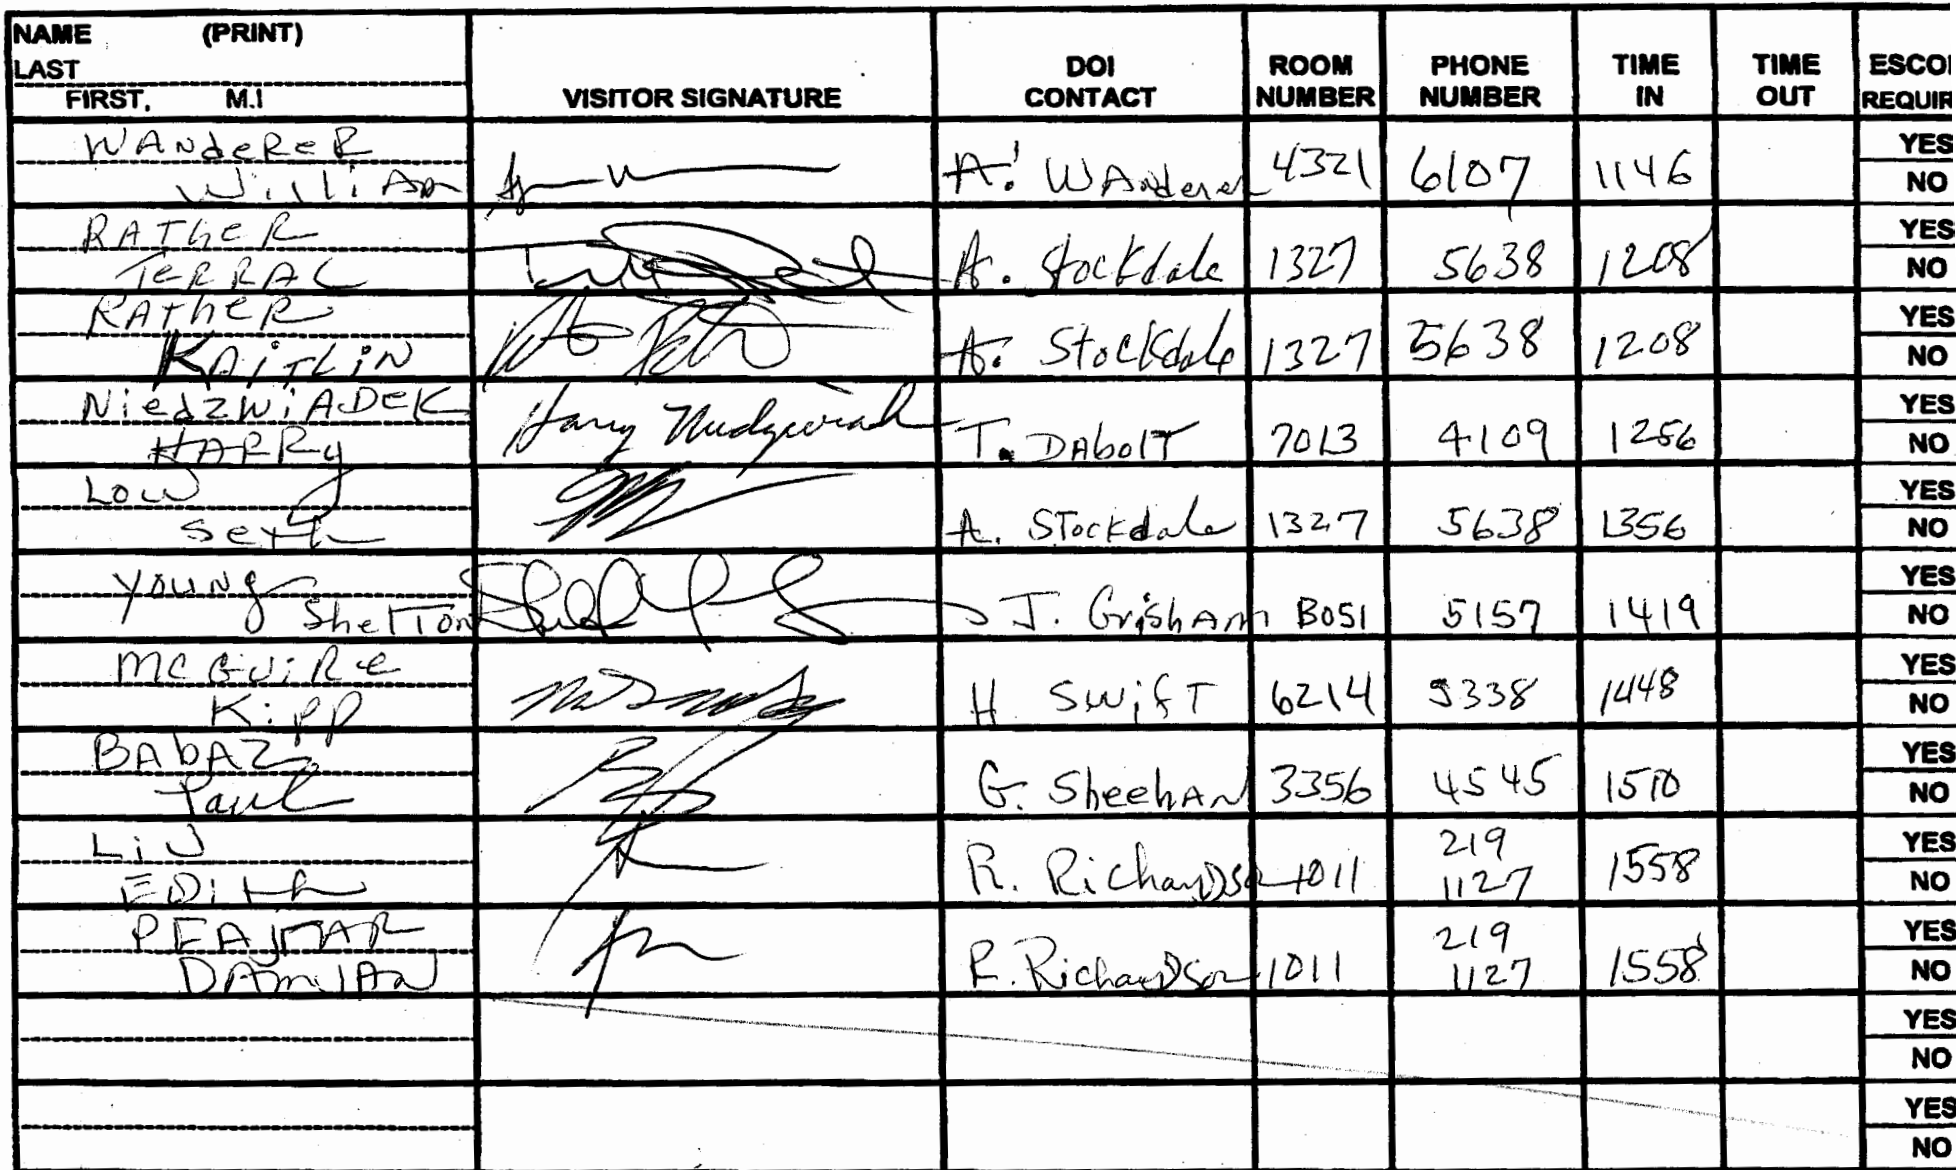 NAME (PRINT)
LAST
FIRST, M.I
VISITOR SIGNATURE
DOI
CONTACT
ROOM
NUMBER
PHONE
NUMBER
TIME
IN
TIME
OUT
ESCO
REQUIR
WANdeReR
William
A. WAnderer 4321 6107 1146
YES
NO
RATheR
TERRAC
A. Stockdale 1327 5638 1208
YES
NO
RATheR
KAiTLiN
A. Stockdale 1327 5638 1208
YES
NO
NiedzWiADEK
HARRy
Harry
T. DAbolT 7013 4109 1256
YES
NO
Low
Seth
A. STockdale 1327 5638 1356
YES
NO
Young
ShelTon
J. GrishAm B051 5157 1419
YES
NO
McGuiRe
Kipp
H SwifT 6214 5338 1448
YES
NO
BAbAZ
Paul
G. SheehAN 3356 4545 1510
YES
NO
Liu
EDith
R. RicharDson 1011 219 1127 1558
YES
NO
DAmiAN
R. RicharDson 1011 219 1127 1558
YES
NO
YES
NO
YES
NO